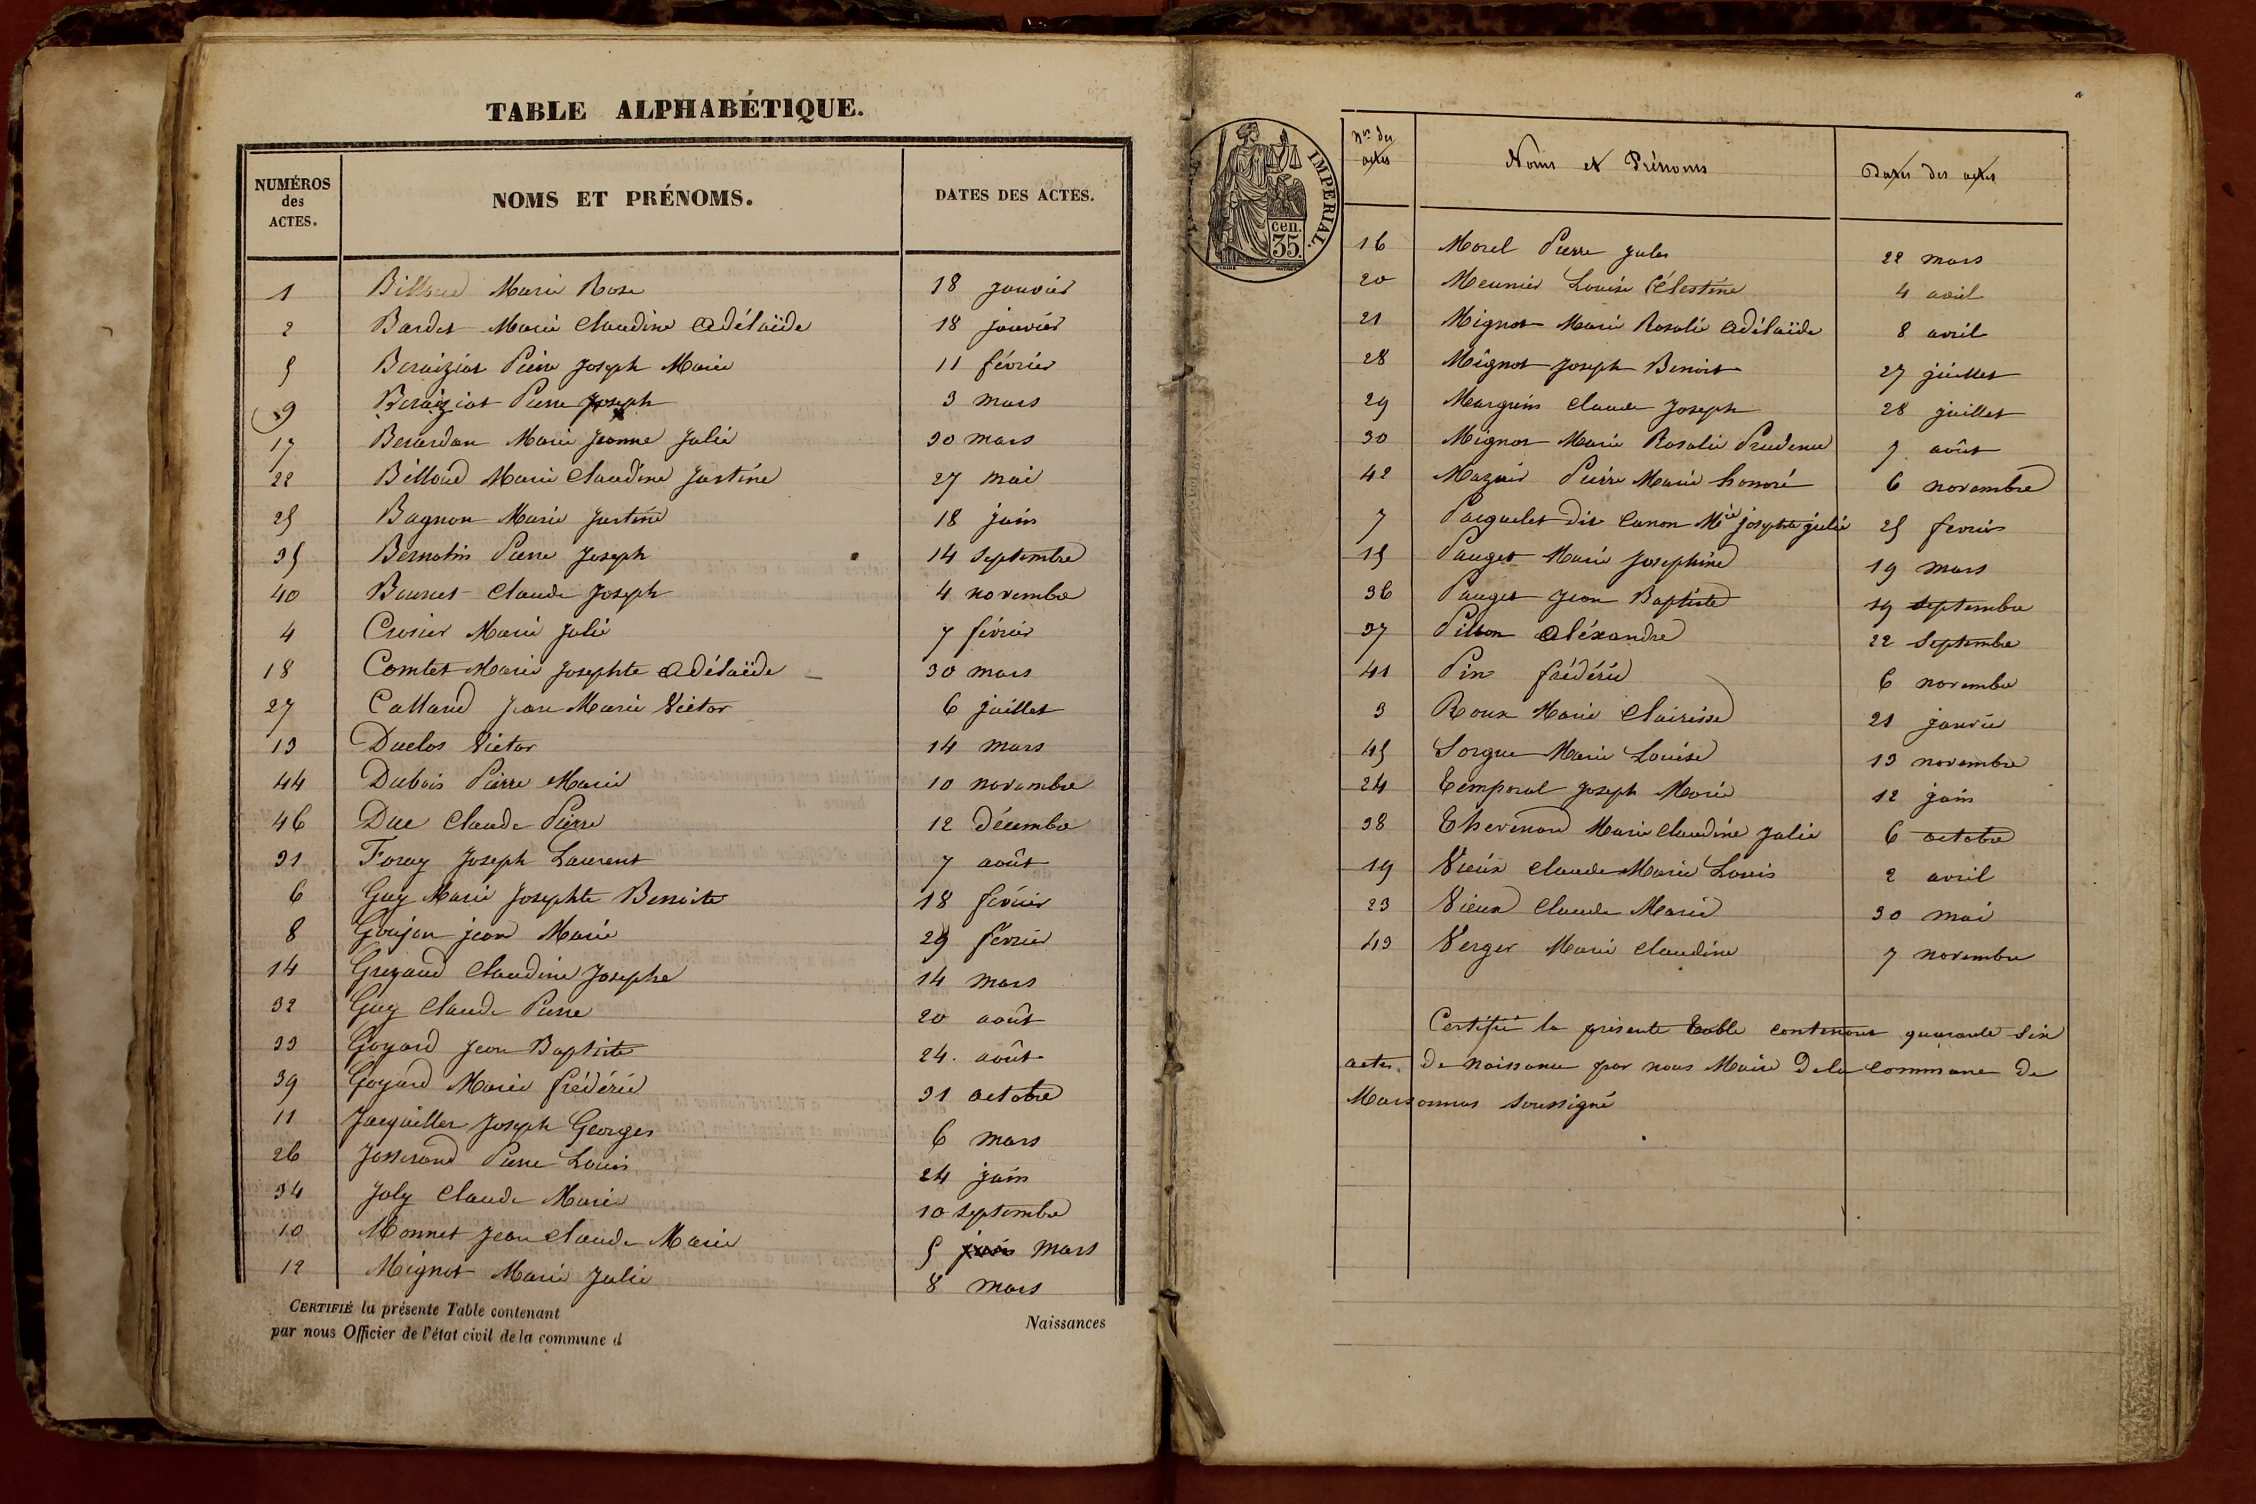 TABLE ALPHABÉTIQUE.
NUMÉROS des ACTES. NOMS ET PRÉNOMS. DATES DES ACTES.
1 Billoud Marie Rose 18 janvier
2 Bardet Marie Claudine Adélaïde 18 janvier
5 Beraiziat Pierre Joseph Marie 11 février
9 Beraiziat Pierre Joseph 3 mars
17 Berardan Marie Jeanne Julie 30 mars
22 Billoud Marie Claudine Justine 27 mai
25 Bagnon Marie Justine 18 juin
35 Bernolin Pierre Joseph 14 septembre
40 Claude Joseph 4 novembre
4 Crosier Marie Julie 7 février
18 Comtet Marie Josephte Adélaïde 30 mars
27 Calland Jean Marie Victor 6 juillet
13 Duclos Victor 14 mars
44 Dubois Pierre Marie 10 novembre
46 Duc Claude Pierre 12 décembre
31 Foray Joseph Laurent 7 août
6 Guy Marie Josephte Benoite 18 février
8 Goujon jean Marie 29 février
14 Grezaud Claudine Josephe 14 mars
32 Guy Claude Pierre 20 août
33 Goyard Jean Baptiste 24. août
39 Goyard Marie frédéric 31 octobre
11 Jacquiller Joseph Georges 6 mars
26 Josserand Pierre Louis 24 juin
34 Joly Claude Marie 10 septembre
10 Monnet Jean Claude Marie 5 juin mars
12 Mignot Marie Julie 8 mars
CERTIFIÉ la présente Table contenant
par nous Officier de l'état civil de la commune d
Naissances
IMPERIAL.
cen.
35.
Nos des actes Noms et Prénoms Dates des actes
16 Morel Pierre Jules 22 mars
20 Meunier Louise Célestine 4 avril
21 Mignot Marie Rosalie Adélaïde 8 avril
28 Mignot Joseph Benoit 27 juillet
29 Margrin Claude Joseph 28 juillet
30 Mignot Marie Rosalie Prudence 7 août
42 Mazuir Pierre Marie honoré 6 novembre
7 Paquelet dit Canon Mie josephte julie 25 février
15 Pauget Marie Josephine 19 mars
36 Pauget Jean Baptiste 19 septembre
37 Pillon Aléxandre 22 septembre
41 Pin frédéric 6 novembre
3 Roux Marie Clairisse 21 janvier
45 Sorgue Marie Louise 13 novembre
24 Temporal Joseph Marie 12 juin
38 Thevenard Marie Claudine Julie 6 octobre
19 Vieux Claude Marie Louis 2 avril
23 Vieux Claude Marie 30 mai
43 Verger Marie Claudine 7 novembre
Certifié la présente table contenant quarante six
actes de naissance par nous Maire de la commune de
Marsonnas soussigné